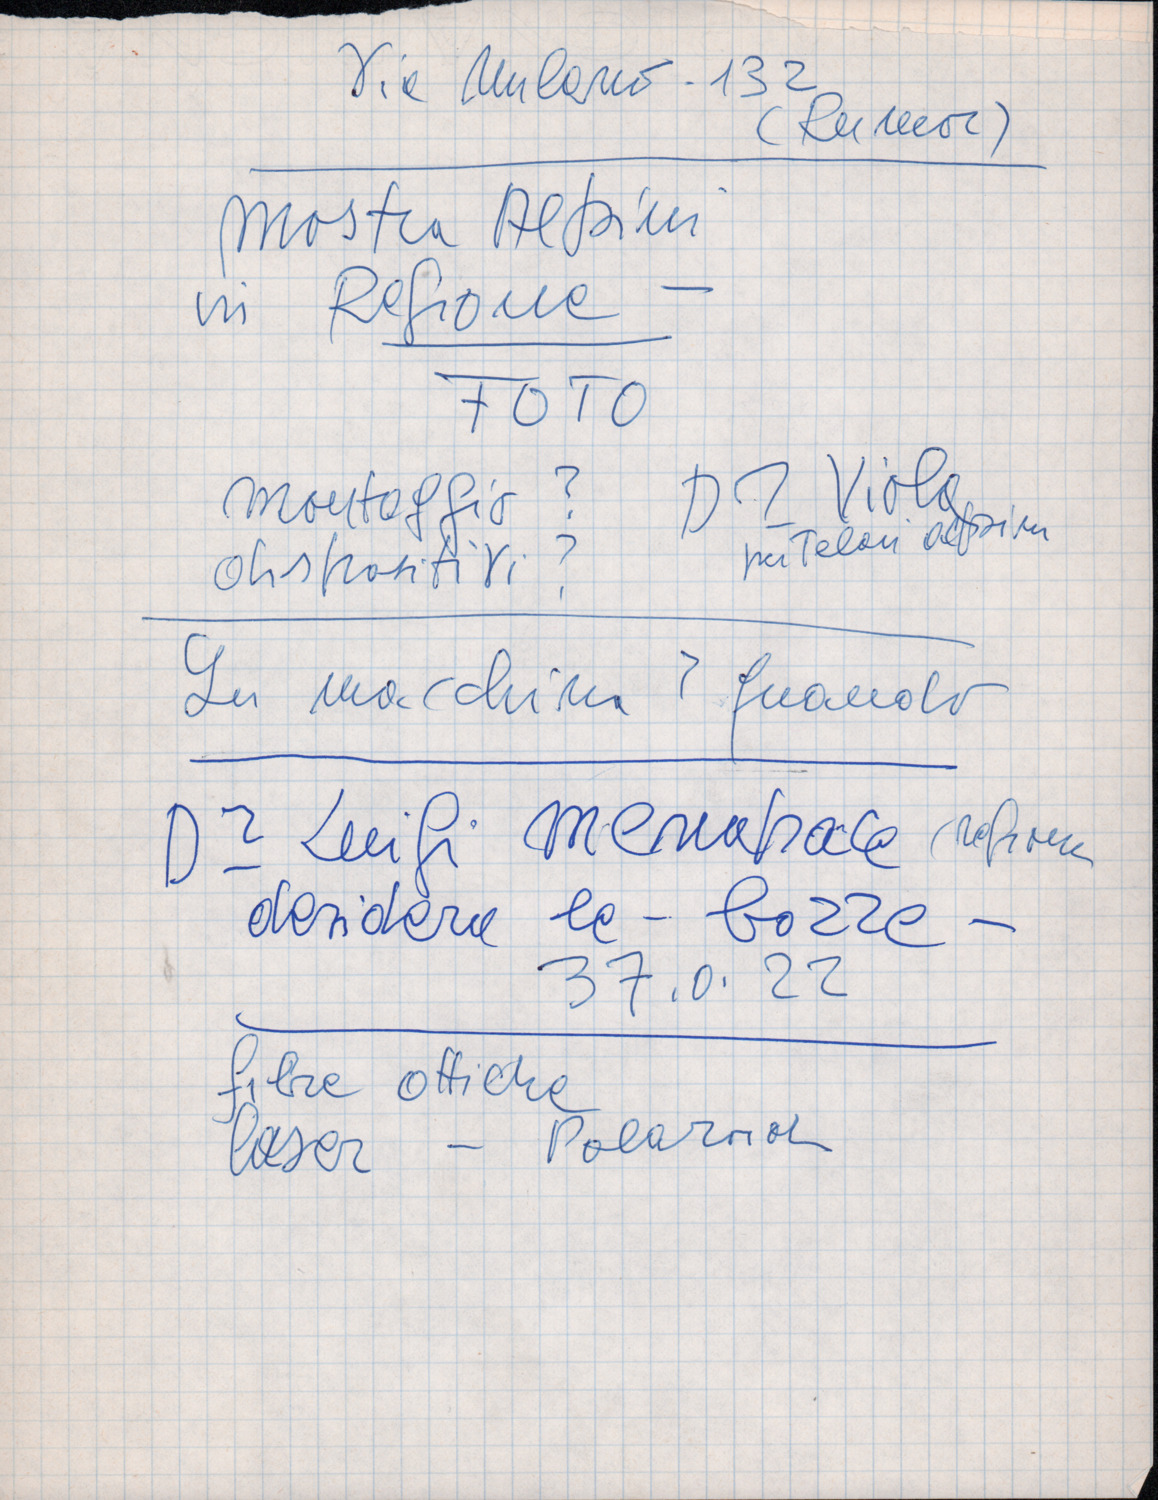 Via Milano - 132
(Rumor)
Mostra Alpini
in Regione -
FOTO
Montaggio ? Dr Viola
diapositivi ? per Telai alpini
La macchina ? quando
Dr Luigi Menapace (regione
desidera le - bozze -
37.0.22
fibre ottiche
laser - Polaroid